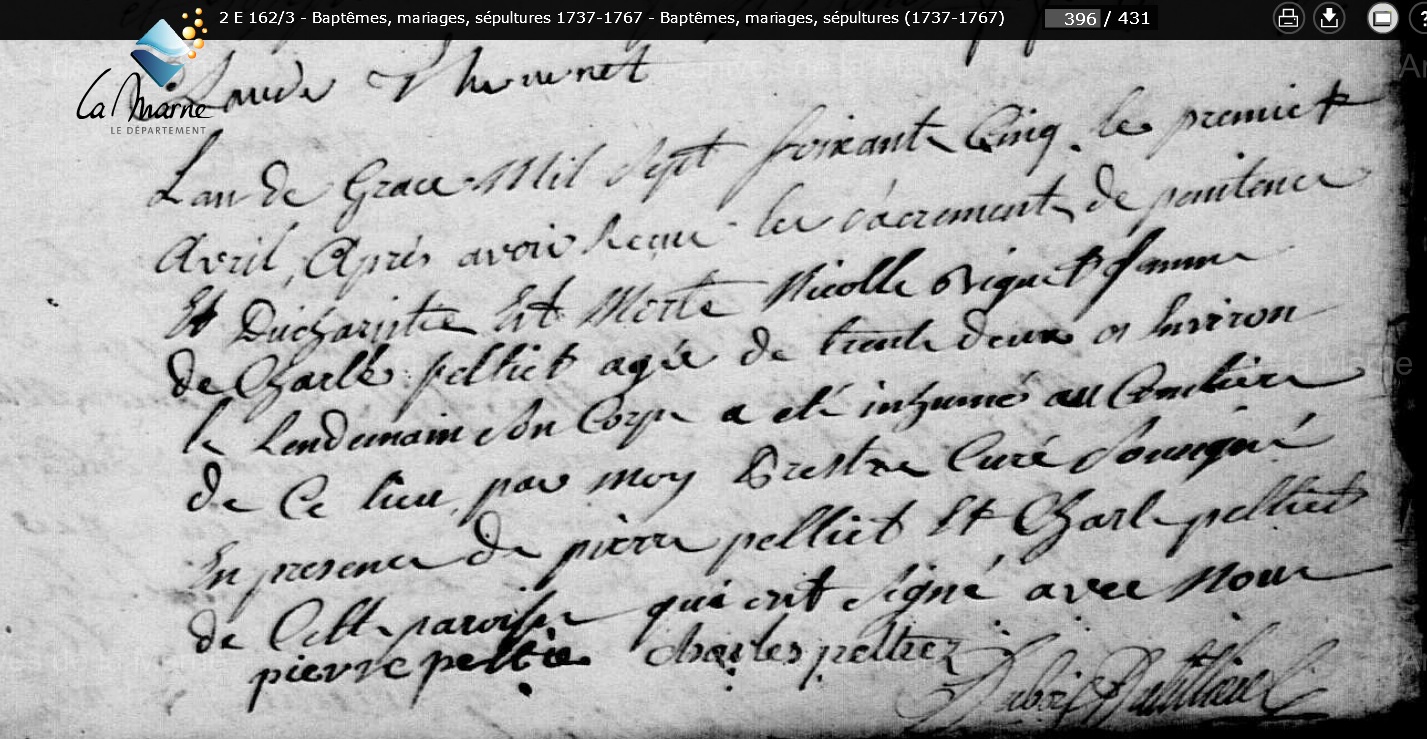 2 E 162/3 - Baptêmes, mariages, sépultures 1737-1767 - Baptêmes, mariages, sépultures (1737-1767) 396 / 431
La Marne
LE DÉPARTEMENT
Lan de Grace Mil Sept soixante Cinq, le premier
Avril, Après avoir Reçue les sacrements de penitence
Et Ducharistie Est Morte Nicolle Briquet femme
de Charle pelliet agée de trente deux ans Environ
le Lendemain son Corps a eté inhumé au Cimetiere
de Ce lieu par moy Prestre Curé sousigné
En presence de pierre pelliet Et Charle pelliet
de Cette paroisse qui ont signé avec Nous
pierre peltie charles peltiez